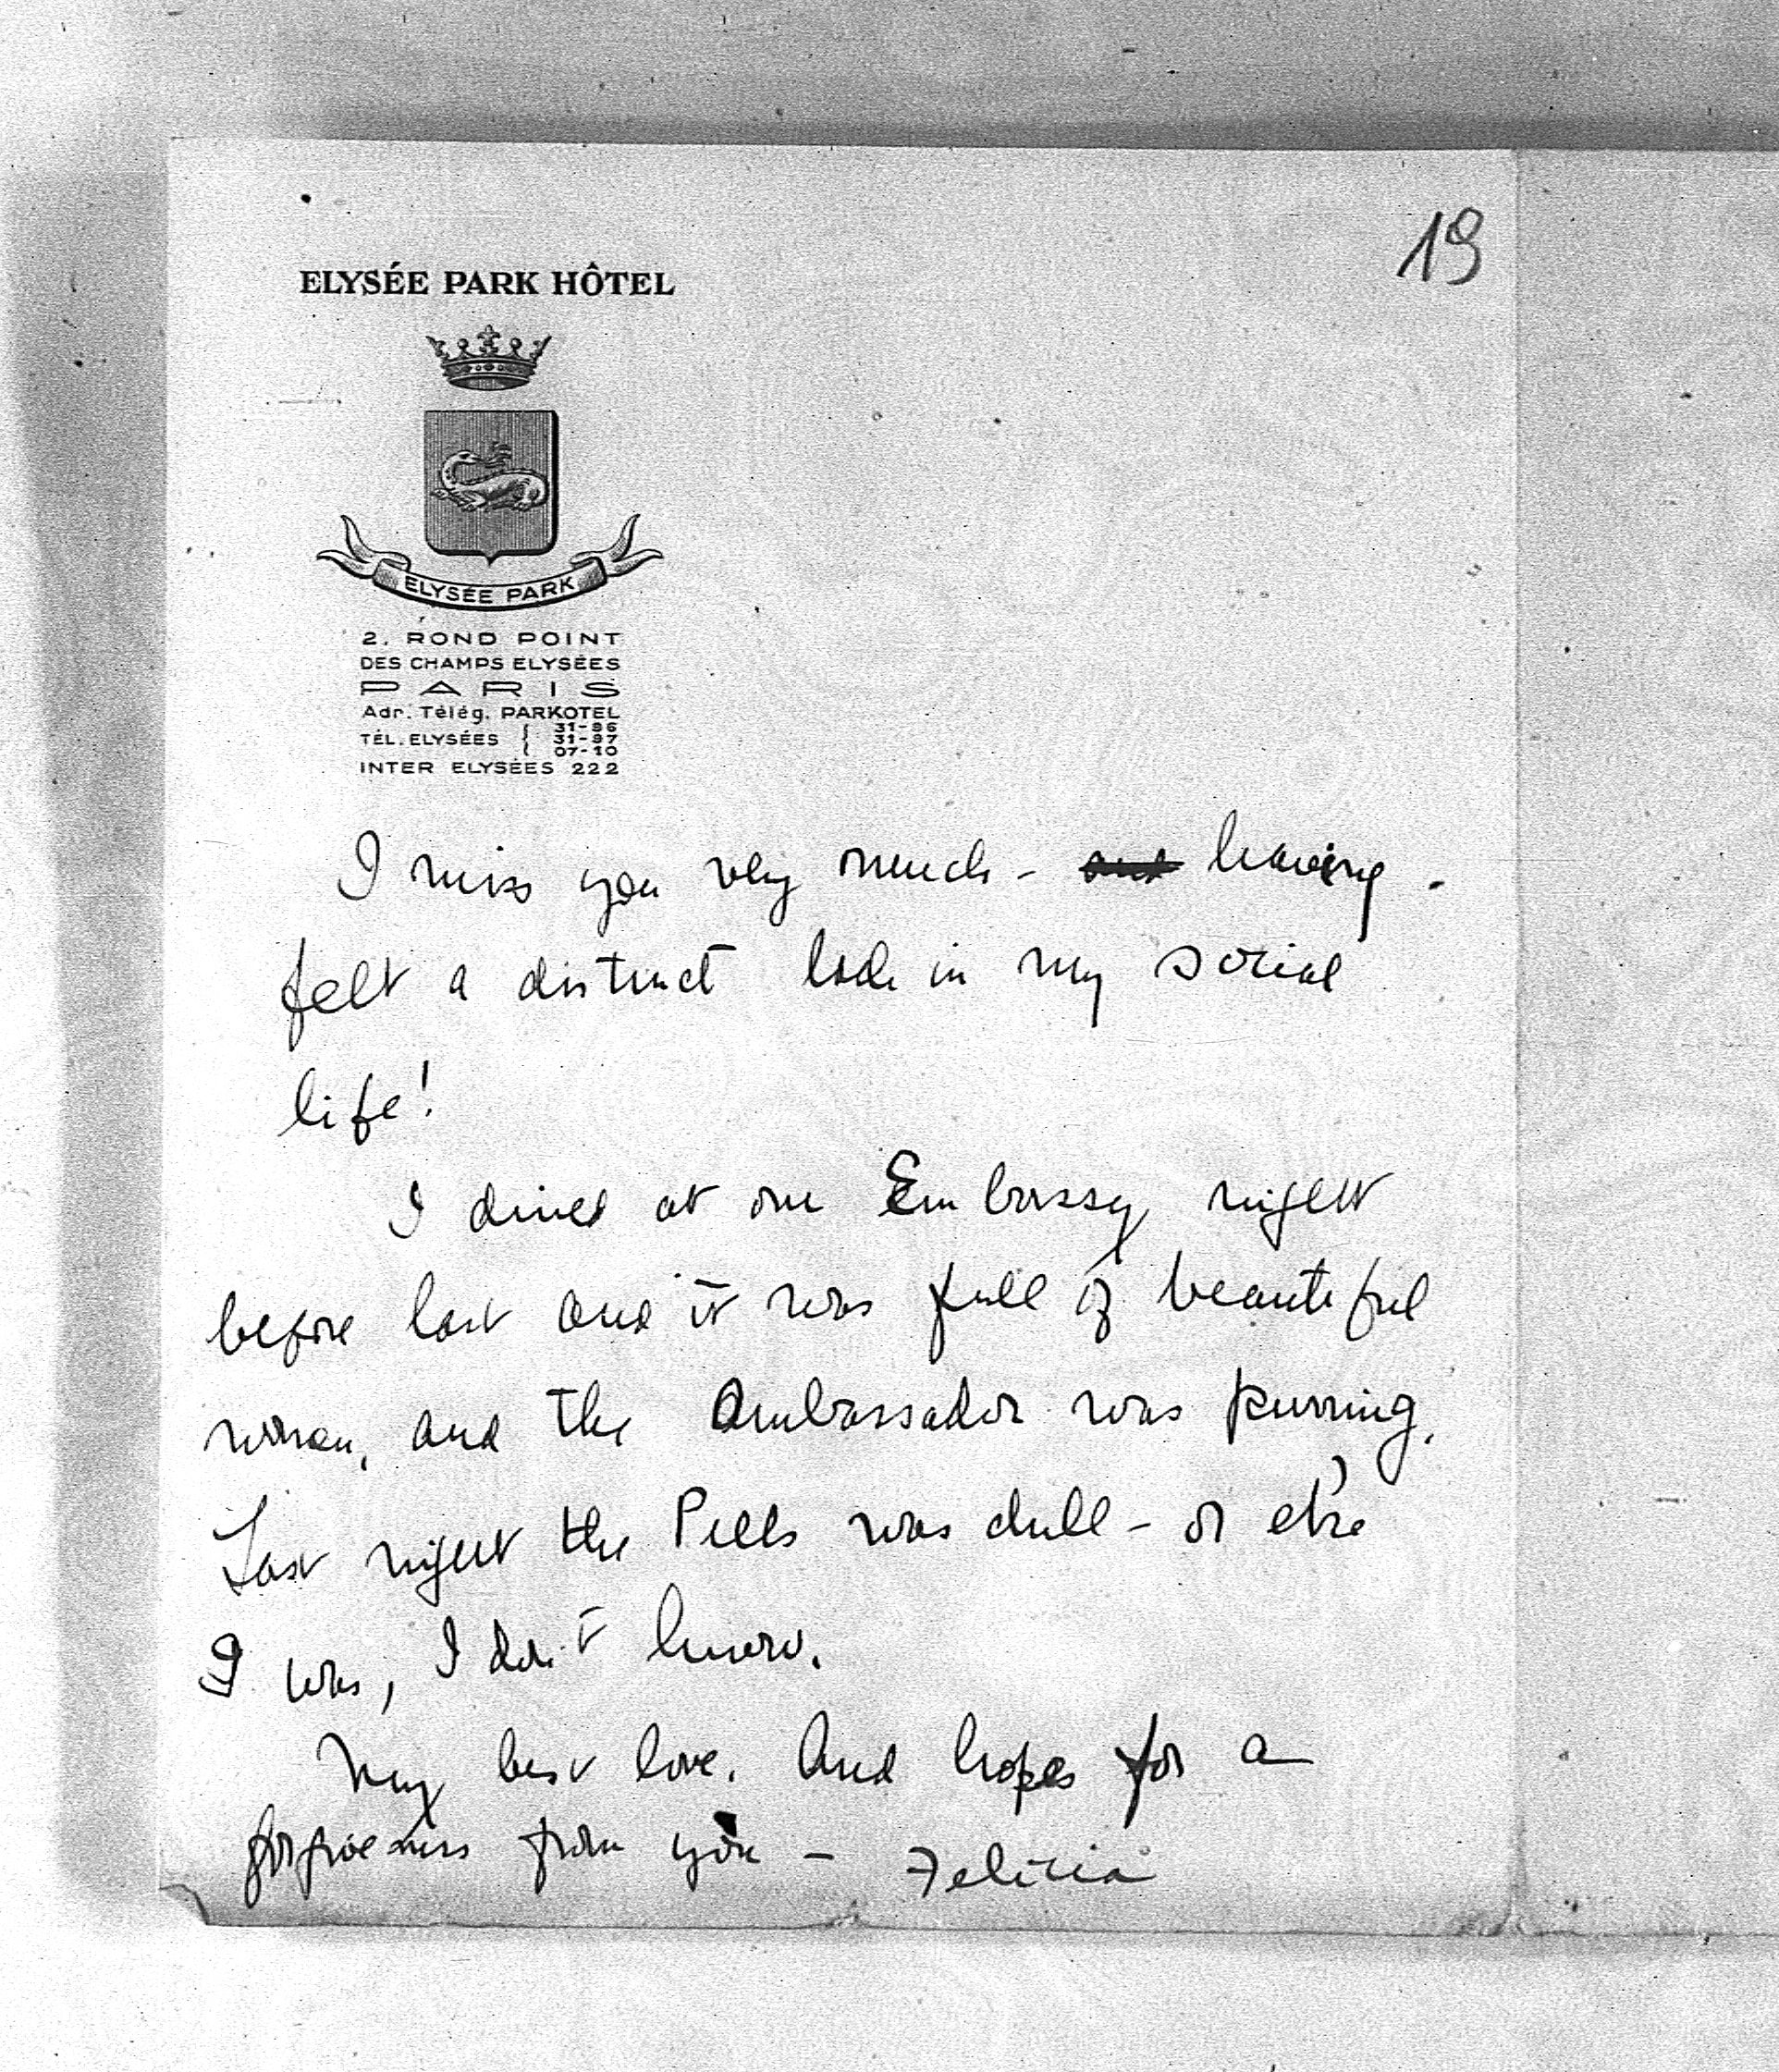 19
ELYSÉE PARK HÔTEL
ELYSÉE PARK
2. ROND POINT
DES CHAMPS ELYSÉES
PARIS
Adr. Télég. PARKOTEL
TÉL. ELYSÉES { 31-96
31-97
07-10
INTER ELYSÉES 222
I miss you very much - and leaving -
felt a distinct lack in my social
life!
I dined at our Embassy night
before last and it was full of beautiful
women, and the Ambassador was purring.
Last night the Pells was dull - or else
I was, I don't know.
My best love. And hopes for a
forgiveness from you - Felicia